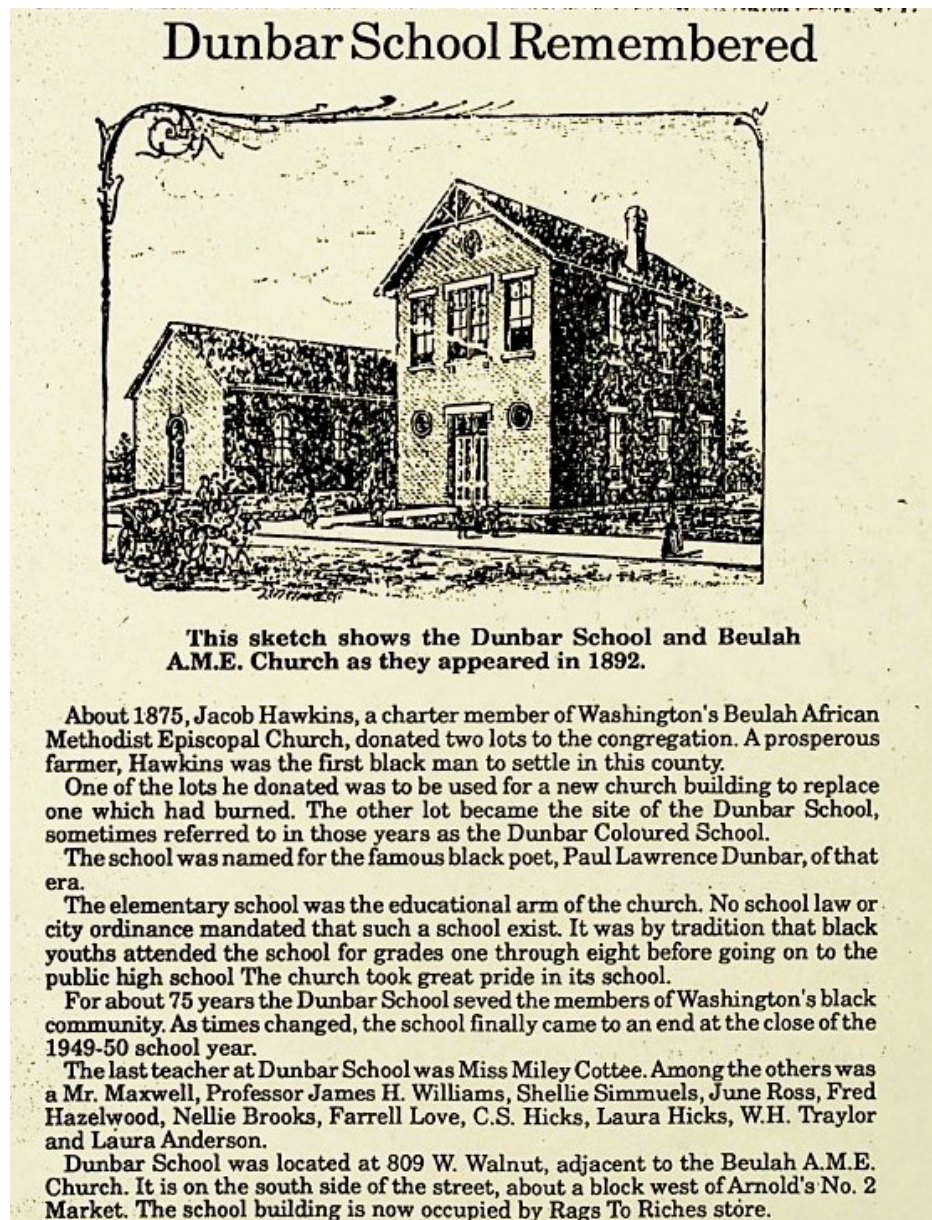 Dunbar School Remembered
This sketch shows the Dunbar School and Beulah
A.M.E. Church as they appeared in 1892.
About 1875, Jacob Hawkins, a charter member of Washington's Beulah African
Methodist Episcopal Church, donated two lots to the congregation. A prosperous
farmer, Hawkins was the first black man to settle in this county.
One of the lots he donated was to be used for a new church building to replace
one which had burned. The other lot became the site of the Dunbar School,
sometimes referred to in those years as the Dunbar Coloured School.
The school was named for the famous black poet, Paul Lawrence Dunbar, of that
era.
The elementary school was the educational arm of the church. No school law or
city ordinance mandated that such a school exist. It was by tradition that black
youths attended the school for grades one through eight before going on to the
public high school The church took great pride in its school.
For about 75 years the Dunbar School seved the members of Washington's black
community. As times changed, the school finally came to an end at the close of the
1949-50 school year.
The last teacher at Dunbar School was Miss Miley Cottee. Among the others was
a Mr. Maxwell, Professor James H. Williams, Shellie Simmuels, June Ross, Fred
Hazelwood, Nellie Brooks, Farrell Love, C.S. Hicks, Laura Hicks, W.H. Traylor
and Laura Anderson.
Dunbar School was located at 809 W. Walnut, adjacent to the Beulah A.M.E.
Church. It is on the south side of the street, about a block west of Arnold's No. 2
Market. The school building is now occupied by Rags To Riches store.